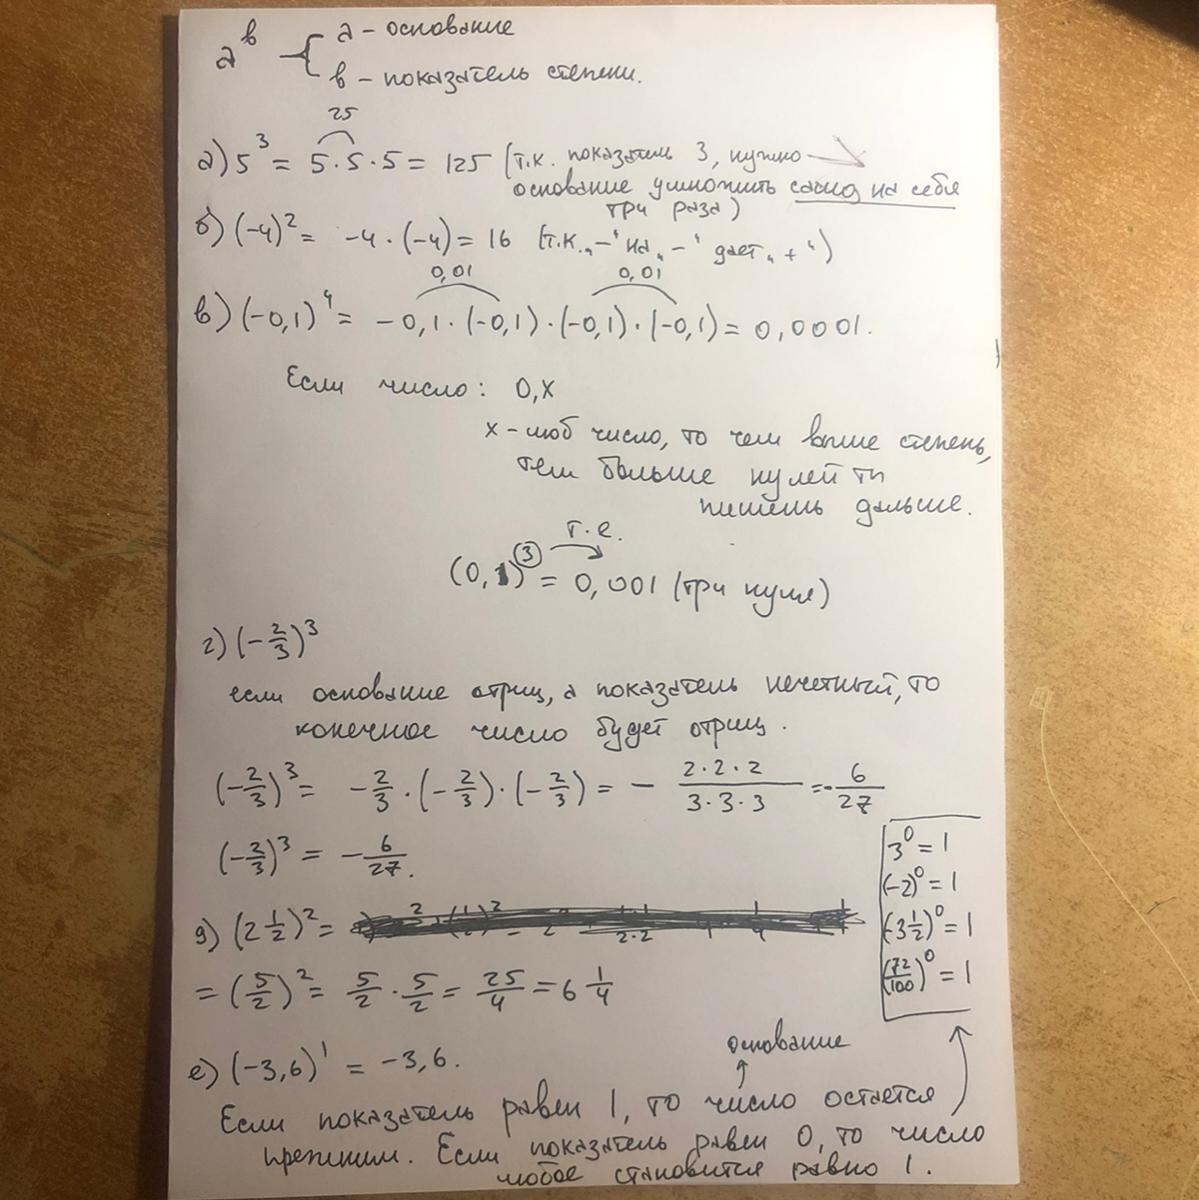 a^в { а - основание
в - показатель степени.
25
а) 5^3 = 5·5·5 = 125 (т.к. показатель 3, нужно
основание умножить само на себя
три раза)
б) (-4)^2 = -4·(-4) = 16 (т.к. „-“ на „-“ дает „+“)
0,01 0,01
в) (-0,1)^4 = -0,1·(-0,1)·(-0,1)·(-0,1) = 0,0001.
Если число: 0,х
х - люб число, то чем выше степень,
тем больше нулей ты
пишешь дальше.
т.е.
(0,1)^3 = 0,001 (три нуля)
г) (-2/3)^3
если основание отриц, а показатель нечетный, то
конечное число будет отриц.
(-2/3)^3 = -2/3·(-2/3)·(-2/3) = - 2·2·2/3·3·3 = -6/27
(-2/3)^3 = -6/27.
д) (2 1/2)^2 =
= (5/2)^2 = 5/2·5/2 = 25/4 = 6 1/4
3^0 = 1
(-2)^0 = 1
(-3 1/2)^0 = 1
(72/100)^0 = 1
е) (-3,6)^1 = -3,6.
основание
Если показатель равен 1, то число остается
прежним. Если показатель равен 0, то число
любое становится равно 1.